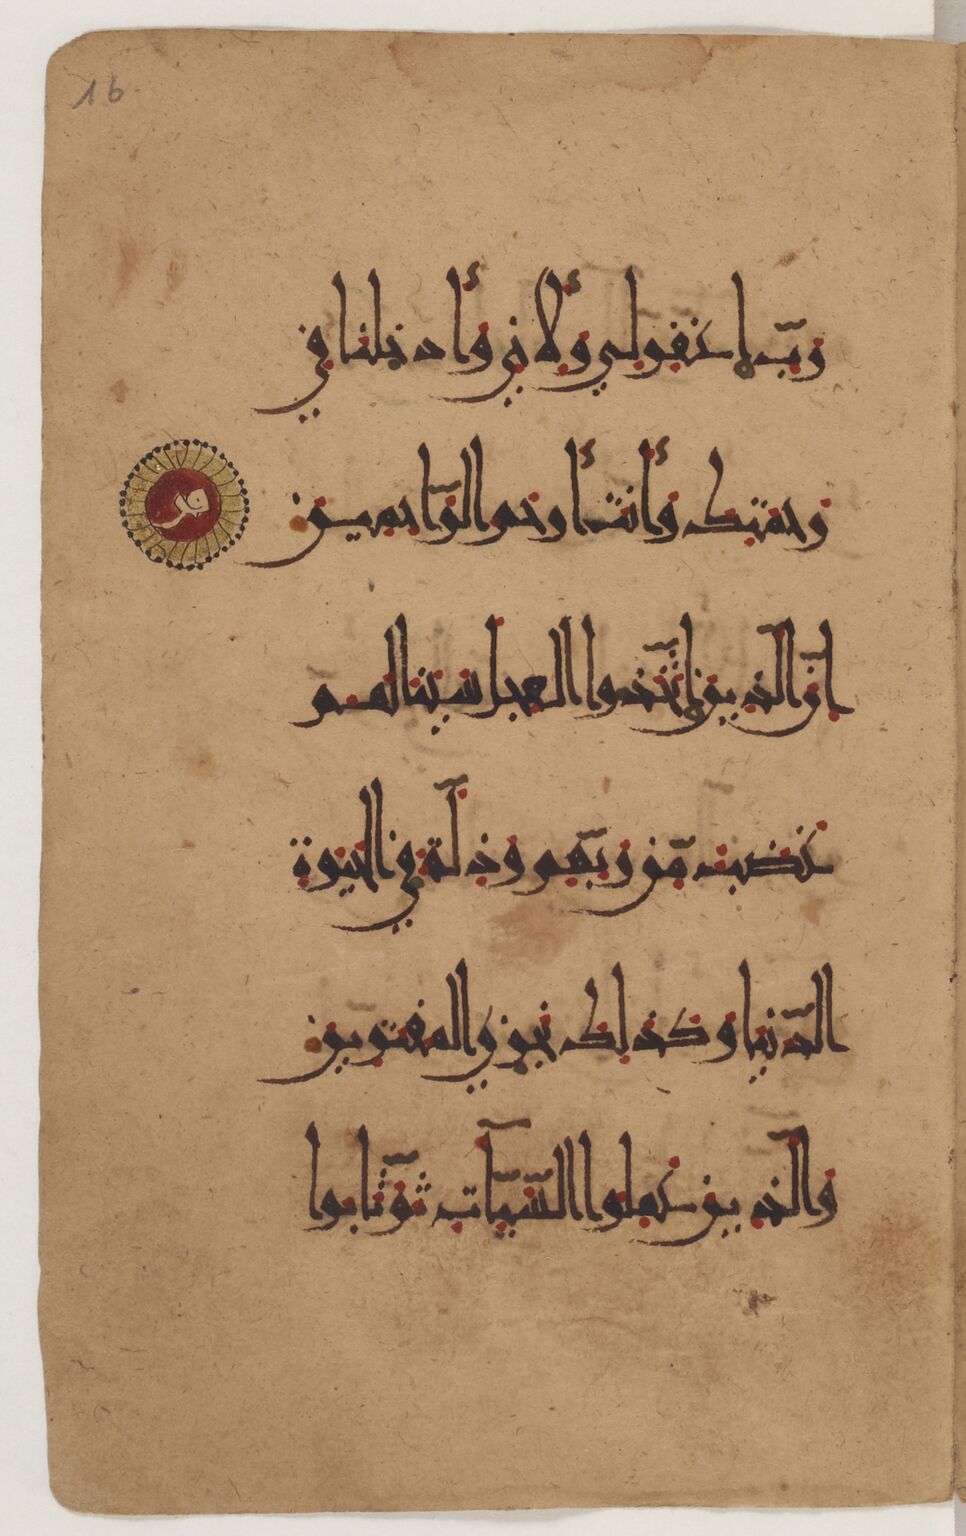 16
رب اغفر لي ولأخي وأدخلنا في
رحمتك وأنت أرحم الراحمين
إن الذين اتخذوا العجل سينالهم
غضب من ربهم وذلة في الحيوة
الدنيا وكذلك نجزي المفترين
والذين عملوا السيآت ثم تابوا